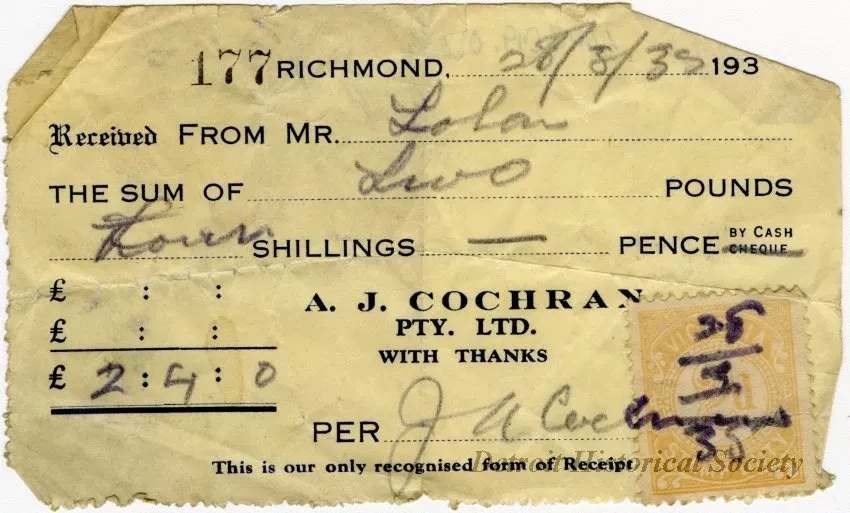 177 RICHMOND, 28/3/35 193
Received FROM MR. Lohan
THE SUM OF Two POUNDS
Four SHILLINGS — PENCE BY CASH CHEQUE
£ : :
£ : :
£ 2 : 4 : 0
A. J. COCHRAN
PTY. LTD.
WITH THANKS
VICTORIA
28
3
35
PER J A Cochrane
This is our only recognised form of Receipt
Detroit Historical Society